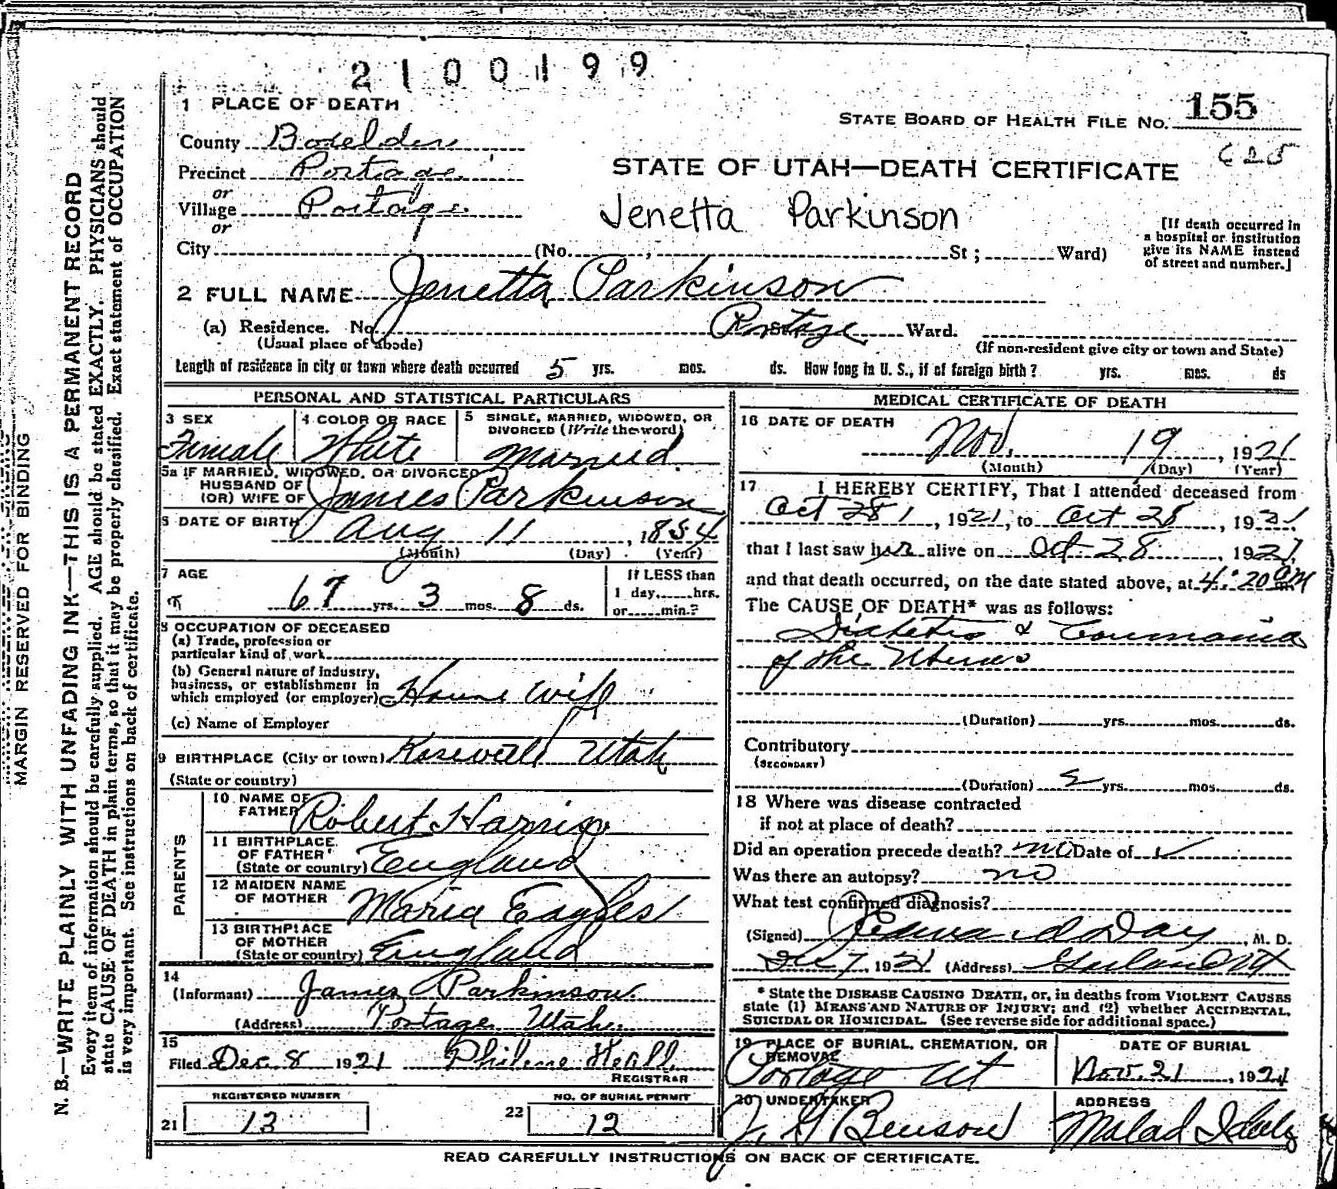 2100199
1 PLACE OF DEATH
STATE BOARD OF HEALTH FILE NO. 155
County Boxelder
625
Precinct Portage
STATE OF UTAH—DEATH CERTIFICATE
or
Village Portage
or
Jenetta Parkinson
[If death occurred in a hospital or institution give its NAME instead of street and number.]
City (No. St ; Ward)
2 FULL NAME Jenetta Parkinson
(a) Residence. No. Portage St. Ward.
(Usual place of abode)
(If non-resident give city or town and State)
Length of residence in city or town where death occurred 5 yrs. mos. ds. How long in U. S., if of foreign birth? yrs. mos. ds
PERSONAL AND STATISTICAL PARTICULARS
3 SEX
Female
4 COLOR OR RACE
White
5 SINGLE, MARRIED, WIDOWED, OR DIVORCED (Write the word)
Married.
5a IF MARRIED, WIDOWED, OR DIVORCED
HUSBAND OF
(OR) WIFE OF James Parkinson
6 DATE OF BIRTH Aug 11, 1854
(Month) (Day) (Year)
7 AGE
67 yrs. 3 mos. 8 ds.
If LESS than
1 day, hrs.
or min.?
8 OCCUPATION OF DECEASED
(a) Trade, profession or
particular kind of work
(b) General nature of industry,
business, or establishment in
which employed (or employer) House wife
(c) Name of Employer
9 BIRTHPLACE (City or town) Utah
(State or country)
PARENTS
10 NAME OF
FATHER Robert Harris
11 BIRTHPLACE
OF FATHER
(State or country) England
12 MAIDEN NAME
OF MOTHER Maria Eagles
13 BIRTHPLACE
OF MOTHER
(State or country) England
14
(Informant) James Parkinson
(Address) Portage Utah.
15
Filed Dec. 8 1921 Philene Heall.
REGISTRAR
REGISTERED NUMBER
21 13
NO. OF BURIAL PERMIT
22 12
MEDICAL CERTIFICATE OF DEATH
16 DATE OF DEATH
Nov. 19, 1921
(Month) (Day) (Year)
17 I HEREBY CERTIFY, That I attended deceased from
Oct 28, 1921, to Oct 28, 1921
that I last saw her alive on Oct 28, 1921,
and that death occurred, on the date stated above, at 4:20 am
The CAUSE OF DEATH* was as follows:
Diabetis &
of the Uterus
(Duration) yrs. mos. ds.
Contributory
(SECONDARY)
(Duration) yrs. mos. ds.
18 Where was disease contracted
if not at place of death?
Did an operation precede death? no Date of
Was there an autopsy? no
What test confirmed diagnosis?
(Signed) Edward Day, M. D.
Dec 7 1921 (Address) Garland Ut
* State the DISEASE CAUSING DEATH, or, in deaths from VIOLENT CAUSES
state (1) MEANS AND NATURE OF INJURY; and (2) whether ACCIDENTAL,
SUICIDAL OR HOMICIDAL. (See reverse side for additional space.)
19 PLACE OF BURIAL, CREMATION, OR
REMOVAL
Portage Ut
DATE OF BURIAL
Nov. 21, 1921
20 UNDERTAKER
Benson
ADDRESS
Malad Idaho
READ CAREFULLY INSTRUCTIONS ON BACK OF CERTIFICATE.
MARGIN RESERVED FOR BINDING
N. B.—WRITE PLAINLY WITH UNFADING INK—THIS IS A PERMANENT RECORD
Every item of information should be carefully supplied. AGE should be stated EXACTLY. PHYSICIANS should
state CAUSE OF DEATH in plain terms, so that it may be properly classified. Exact statement of OCCUPATION
is very important. See instructions on back of certificate.